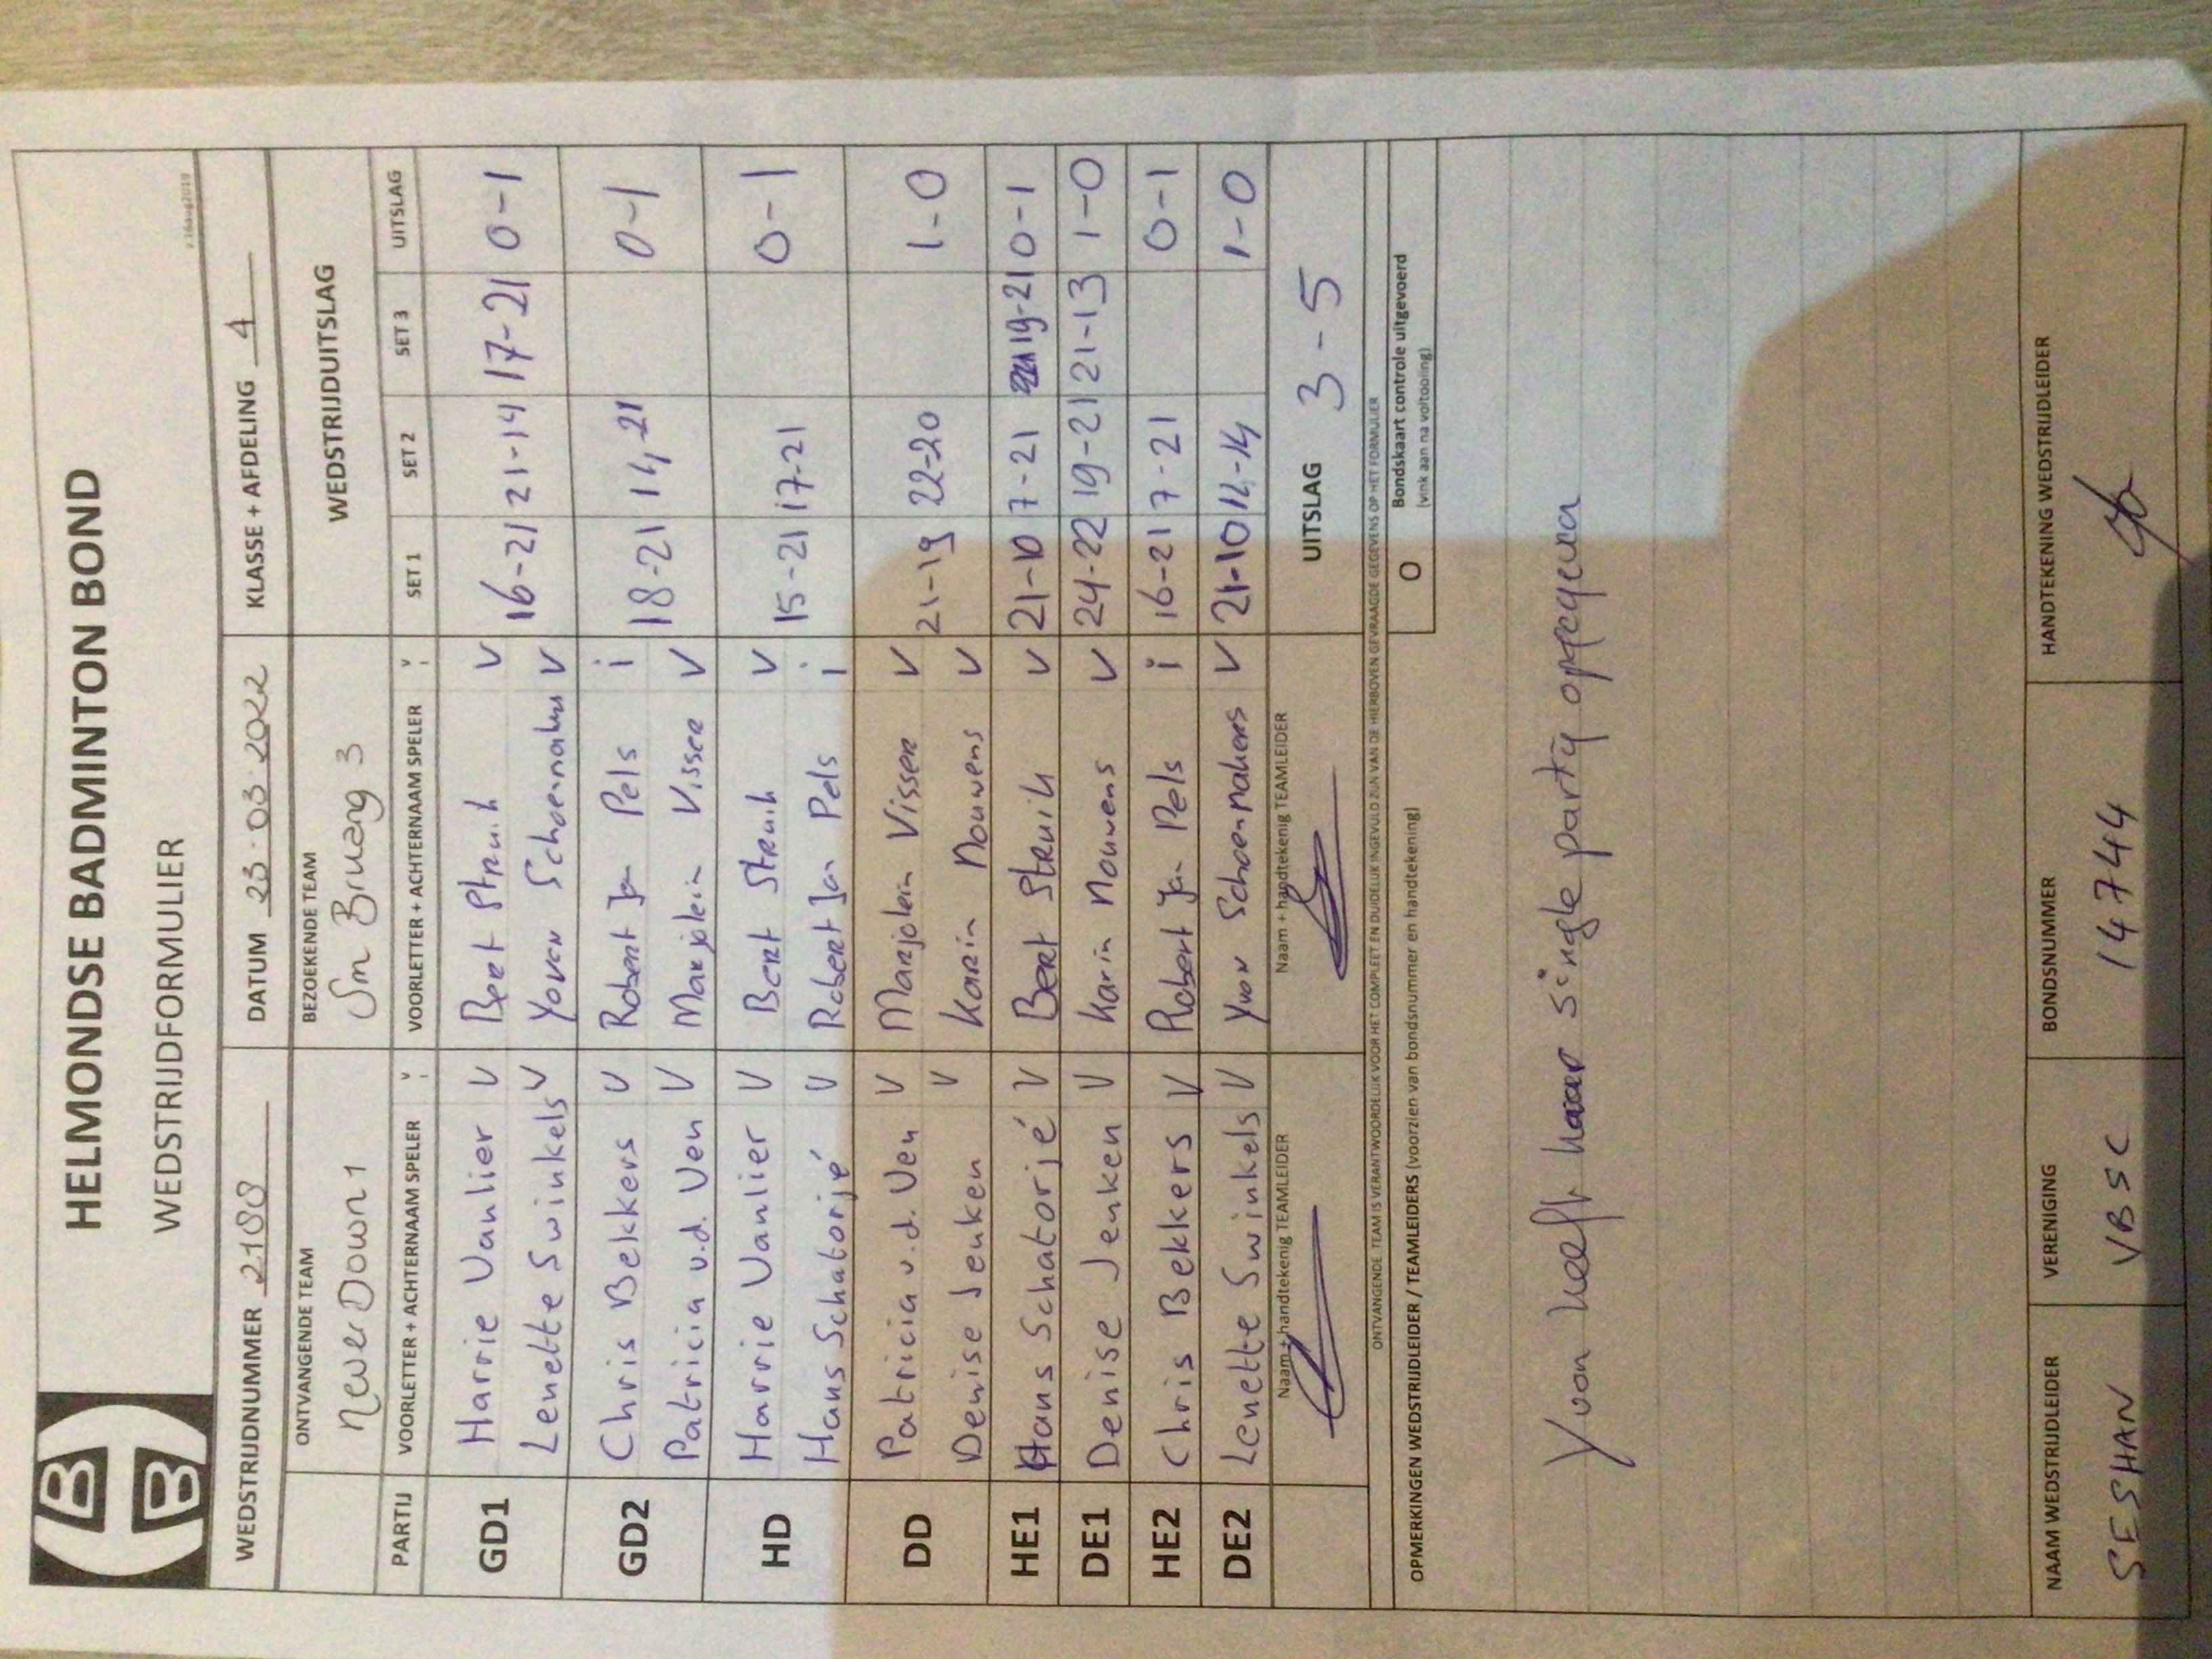 HELMONDSE BADMINTON BOND
WEDSTRIJDFORMULIER
WEDSTRIJDNUMMER 2188 DATUM 23-03-2022 KLASSE + AFDELING 4
ONTVANGENDE TEAM BEZOEKENDE TEAM WEDSTRIJDUITSLAG
Never Down 1 3
PARTIJ VOORLETTER + ACHTERNAAM SPELER VOORLETTER + ACHTERNAAM SPELER SET 1 SET 2 SET 3 UITSLAG
GD1 Harrie Vanlier V Bert Struik V 16-21 21-14 17-21 0-1
Lenette Swinkels V Yovon Schoenmakers V
GD2 Chris Bekkers V Robert Jan Pels i 18-21 14-21 0-1
Patricia v.d. Ven V Marjolein Visser V
HD Harrie Vanlier V Bert Struik V 15-21 17-21 0-1
Hans Schatorjé V Robert Jan Pels i
DD Patricia v.d. Ven V Marjolein Visser V 21-19 22-20 1-0
Denise Jenken V Karin Nouwens V
HE1 Hans Schatorjé V Bert Struik V 21-10 7-21 19-21 0-1
DE1 Denise Jenken V Karin Nouwens V 24-22 19-21 21-13 1-0
HE2 Chris Bekkers V Robert Jan Pels i 16-21 7-21 0-1
DE2 Lenette Swinkels V Yvon Schoenmakers V 21-10 1-0
Naam + handtekenig TEAMLEIDER Naam + handtekenig TEAMLEIDER UITSLAG 3-5
ONTVANGENDE TEAM IS VERANTWOORDELIJK VOOR HET COMPLEET EN DUIDELIJK INGEVULD ZIJN VAN DE HIERBOVEN GEVRAAGDE GEGEVENS OP HET FORMULIER
OPMERKINGEN WEDSTRIJDLEIDER / TEAMLEIDERS (voorzien van bondsnummer en handtekening) O Bondskaart controle uitgevoerd
(vink aan na voltooiing)
Yvon heeft haar single party opgegeven
NAAM WEDSTRIJDLEIDER VERENIGING BONDSNUMMER HANDTEKENING WEDSTRIJDLEIDER
SESHAN VBSC 14744